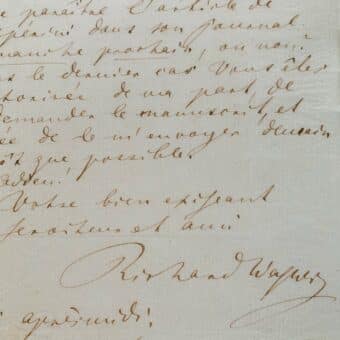 paraître l'article de
dans son journal
manche prochain, ou non?
le dernier cas vous êtes
torisée de ma part, de
demander le manuscrit, et
ée de le m'envoyer demain
ôt que possible.
adieu!
Votre bien exigeant
serviteur et ami
Richard Wagner
aprèsmidi.